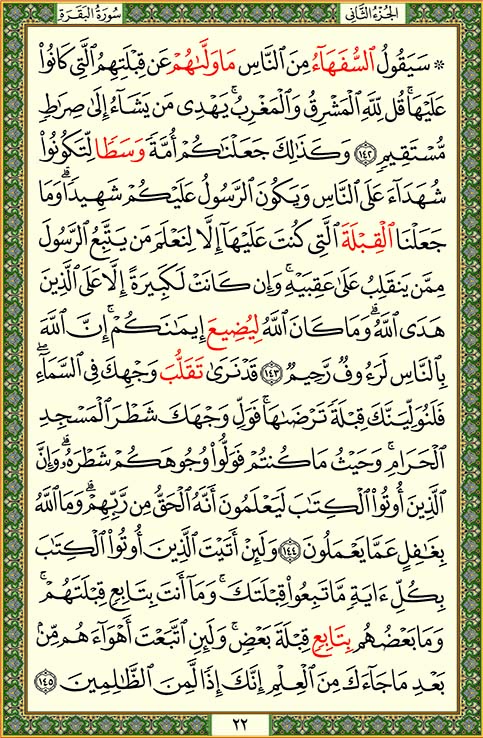 الجزء الثاني
سورة البقرة
۞ سَيَقُولُ ٱلسُّفَهَآءُ مِنَ ٱلنَّاسِ مَا وَلَّىٰهُمْ عَن قِبْلَتِهِمُ ٱلَّتِى كَانُوا۟
عَلَيْهَا ۚ قُل لِّلَّهِ ٱلْمَشْرِقُ وَٱلْمَغْرِبُ ۚ يَهْدِى مَن يَشَآءُ إِلَىٰ صِرَٰطٍ
مُّسْتَقِيمٍ ١٤٢ وَكَذَٰلِكَ جَعَلْنَٰكُمْ أُمَّةً وَسَطًا لِّتَكُونُوا۟
شُهَدَآءَ عَلَى ٱلنَّاسِ وَيَكُونَ ٱلرَّسُولُ عَلَيْكُمْ شَهِيدًا ۗ وَمَا
جَعَلْنَا ٱلْقِبْلَةَ ٱلَّتِى كُنتَ عَلَيْهَآ إِلَّا لِنَعْلَمَ مَن يَتَّبِعُ ٱلرَّسُولَ
مِمَّن يَنقَلِبُ عَلَىٰ عَقِبَيْهِ ۚ وَإِن كَانَتْ لَكَبِيرَةً إِلَّا عَلَى ٱلَّذِينَ
هَدَى ٱللَّهُ ۗ وَمَا كَانَ ٱللَّهُ لِيُضِيعَ إِيمَٰنَكُمْ ۚ إِنَّ ٱللَّهَ
بِٱلنَّاسِ لَرَءُوفٌ رَّحِيمٌ ١٤٣ قَدْ نَرَىٰ تَقَلُّبَ وَجْهِكَ فِى ٱلسَّمَآءِ ۖ
فَلَنُوَلِّيَنَّكَ قِبْلَةً تَرْضَىٰهَا ۚ فَوَلِّ وَجْهَكَ شَطْرَ ٱلْمَسْجِدِ
ٱلْحَرَامِ ۚ وَحَيْثُ مَا كُنتُمْ فَوَلُّوا۟ وُجُوهَكُمْ شَطْرَهُۥ ۗ وَإِنَّ
ٱلَّذِينَ أُوتُوا۟ ٱلْكِتَٰبَ لَيَعْلَمُونَ أَنَّهُ ٱلْحَقُّ مِن رَّبِّهِمْ ۗ وَمَا ٱللَّهُ
بِغَٰفِلٍ عَمَّا يَعْمَلُونَ ١٤٤ وَلَئِنْ أَتَيْتَ ٱلَّذِينَ أُوتُوا۟ ٱلْكِتَٰبَ
بِكُلِّ ءَايَةٍ مَّا تَبِعُوا۟ قِبْلَتَكَ ۚ وَمَآ أَنتَ بِتَابِعٍ قِبْلَتَهُمْ ۚ
وَمَا بَعْضُهُم بِتَابِعٍ قِبْلَةَ بَعْضٍ ۚ وَلَئِنِ ٱتَّبَعْتَ أَهْوَآءَهُم مِّنۢ
بَعْدِ مَا جَآءَكَ مِنَ ٱلْعِلْمِ ۙ إِنَّكَ إِذًا لَّمِنَ ٱلظَّٰلِمِينَ ١٤٥
٢٢